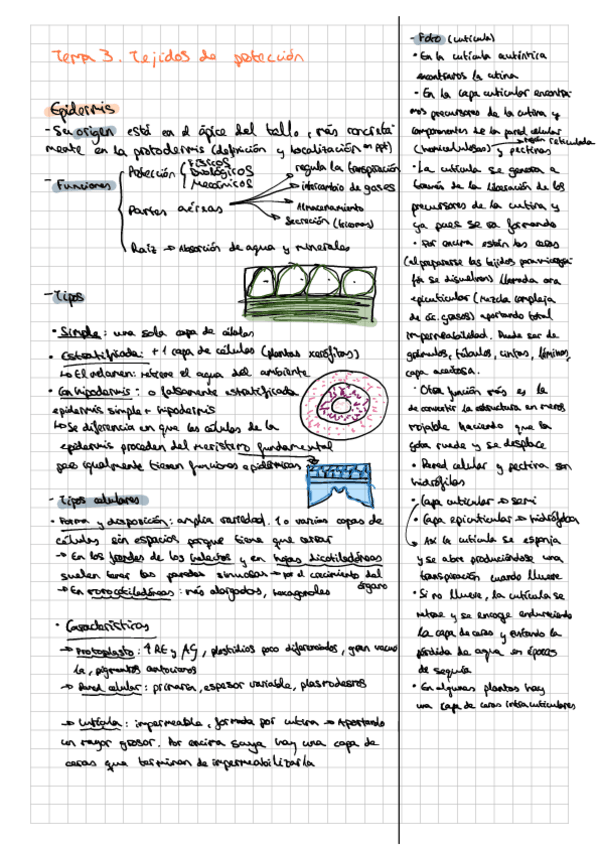 Tema 3. Tejidos de protección
Epidermis
- Su origen está en el ápice del tallo, más concreta-
mente en la protodermis (definición y localización en ppt)
- Funciones
Protección
Físicos
Biológicos
Mecánicos
Partes aéreas
regula la transpiración
intercambio de gases
Almacenamiento
Secreción (tricomas)
Raíz → Absorción de agua y minerales
- Tipos
• Simple: una sola capa de células
• Estratificada: + 1 capa de células (plantas xerófitas)
↳ El velamen: retiene el agua del ambiente
• Con hipodermis: o falsamente estratificada
epidermis simple + hipodermis
↳ Se diferencia en que las células de la
epidermis proceden del meristemo fundamental
pero igualmente tienen funciones epidérmicas
- Tipos celulares
• Forma y disposición: amplia variedad. 1 o varias capas de
células sin espacios porque tiene que cerrar
→ En los bordes de los y en hojas dicotiledóneas
suelen tener las paredes sinuosas → por el crecimiento del
órgano
→ En monocotiledóneas: más alargados, hexagonales
• Características
→ Protoplasto: ↑ RE y AG, plastidios poco diferenciados, gran vacuo
la, pigmentos antocianos
→ Pared celular: primaria, espesor variable, plasmodesmos
→ Cutícula: impermeable, formada por cutina → Aportando
un mayor grosor. Por encima suya hay una capa de
ceras que terminan de impermeabilizarla
- Foto (cutícula)
• En la cutícula auténtica
encontramos la cutina
- En la capa cuticular encontra-
mos precursores de la cutina y
componentes de la pared celular
(hemicelulosas) y pectinas → región reticulada
• La cutícula se genera a
través de la liberación de los
precursores de la cutina y
ya pues se va formando
• Por encima están las ceras
(al prepararse los tejidos para
se disuelven) llamada cera
epicuticular (mezcla compleja
de ác. grasos) aportando total
impermeabilidad. Puede ser de
gránulos, túbulos, cintas, láminas,
capa aceitosa.
• Otra función más es la
de convertir la estructura en menos
mojable haciendo que la
gota ruede y se desplace
• Pared celular y pectina son
hidrófilos
• Capa cuticular → semi
• Capa epicuticular → hidrófoba
• Así la cutícula se esponja
y se abre produciéndose una
transpiración cuando llueve
• Si no llueve, la cutícula se
retrae y se encoge endureciendo
la capa de ceras y evitando la
pérdida de agua en épocas
de sequía
• En algunas plantas hay
una capa de ceras intracuticulares